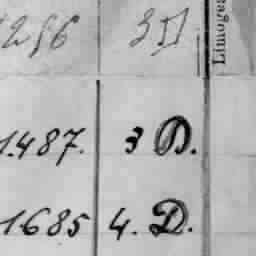 1256 3 D
Limoges
1.487. 3 D.
1685 4. D.